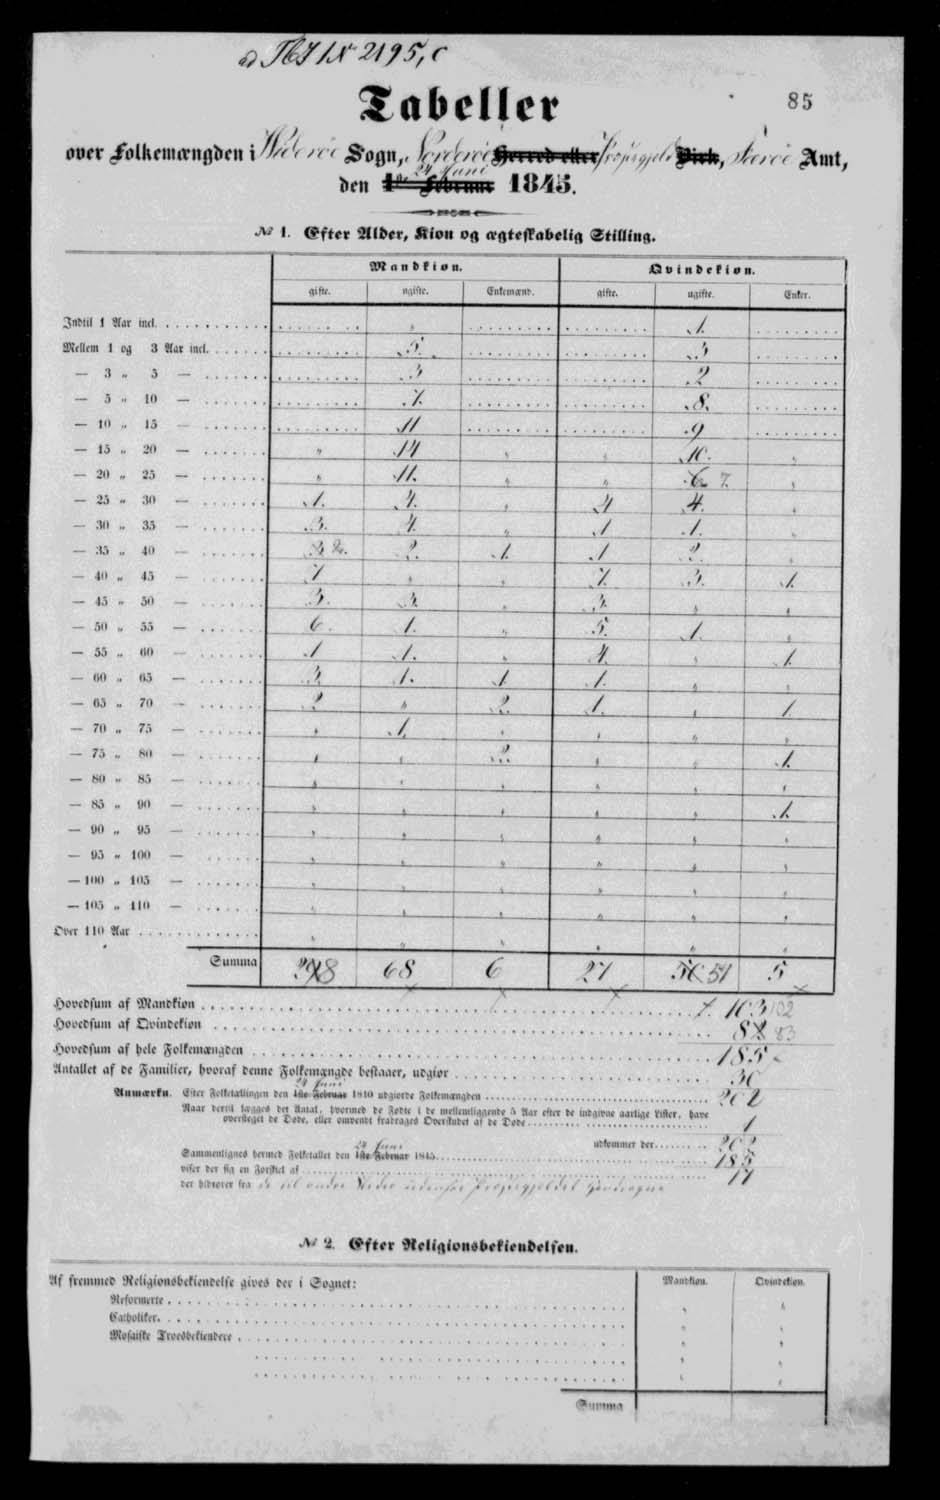 ad Tbl № 2195, c
85
Tabeller
over Folkemængden i Wideröe Sogn, Norderöe Herred eller Præstegjeld Birk, Færöe Amt,
24 Juni
den 1ste Februar 1845.
№ 1. Efter Alder, Kion og ægteskabelig Stilling.
Mandkiøn. Qvindekiøn.
gifte. ugifte. Enkemænd. gifte. ugifte. Enker.
Indtil 1 Aar incl. " 1.
Mellem 1 og 3 Aar incl. 5. 3
— 3 " 5 — 3 2
— 5 " 10 — 7. 8.
— 10 " 15 — 11 9
— 15 " 20 — " 14 " " 10. "
— 20 " 25 — " 11. " " 6 7. "
— 25 " 30 — 1. 4. " 4 4. "
— 30 " 35 — 3. 4. " 1 1. "
— 35 " 40 — 3 2. 2. 1. 1 2. "
— 40 " 45 — 7 " " 7. 3. 1.
— 45 " 50 — 3. 3. " 3. " "
— 50 " 55 — 6. 1. " 5. 1. "
— 55 " 60 — 1 1. " 4. " 1.
— 60 " 65 — 3. 1. 1 1. " "
— 65 " 70 — 2 " 2. 1. " 1.
— 70 " 75 — " 1. " " " "
— 75 " 80 — " " 2. " " 1.
— 80 " 85 — " " " " " "
— 85 " 90 — " " " " " 1.
— 90 " 95 — " " " " " "
— 95 " 100 — " " " " " "
— 100 " 105 — " " " " " "
— 105 " 110 — " " " " " "
Over 110 Aar " " " " " "
Summa 29 28 68 6 27 50 51 5
Hovedsum af Mandkiøn 103 102
Hovedsum af Qvindekiøn 82 83
Hovedsum af hele Folkemængden 185
Antallet af de Familier, hvoraf denne Folkemængde bestaaer, udgiør 30
24 Juni
Anmærkn. Efter Folketællingen den 1ste Februar 1840 udgiorde Folkemængden 202
Naar dertil lægges det Antal, hvormed de Fødte i de mellemliggende 5 Aar efter de indgivne aarlige Lister, have
oversteget de Døde, eller omvendt fradrages Overskudet af de Døde 1
udkommer der 202
24 Juni
Sammenlignes hermed Folketallet den 1ste Februar 1845 185
viser der sig en Forskiel af 17
der hidrører fra de til andre Steder udenfor Præstegjeldet
№ 2. Efter Religionsbekiendelsen.
Af fremmed Religionsbekiendelse gives der i Sognet: Mandkiøn. Qvindekiøn.
Reformerte " "
Catholiker " "
Mosaiske Troesbekiendere " "
" "
" "
Summa